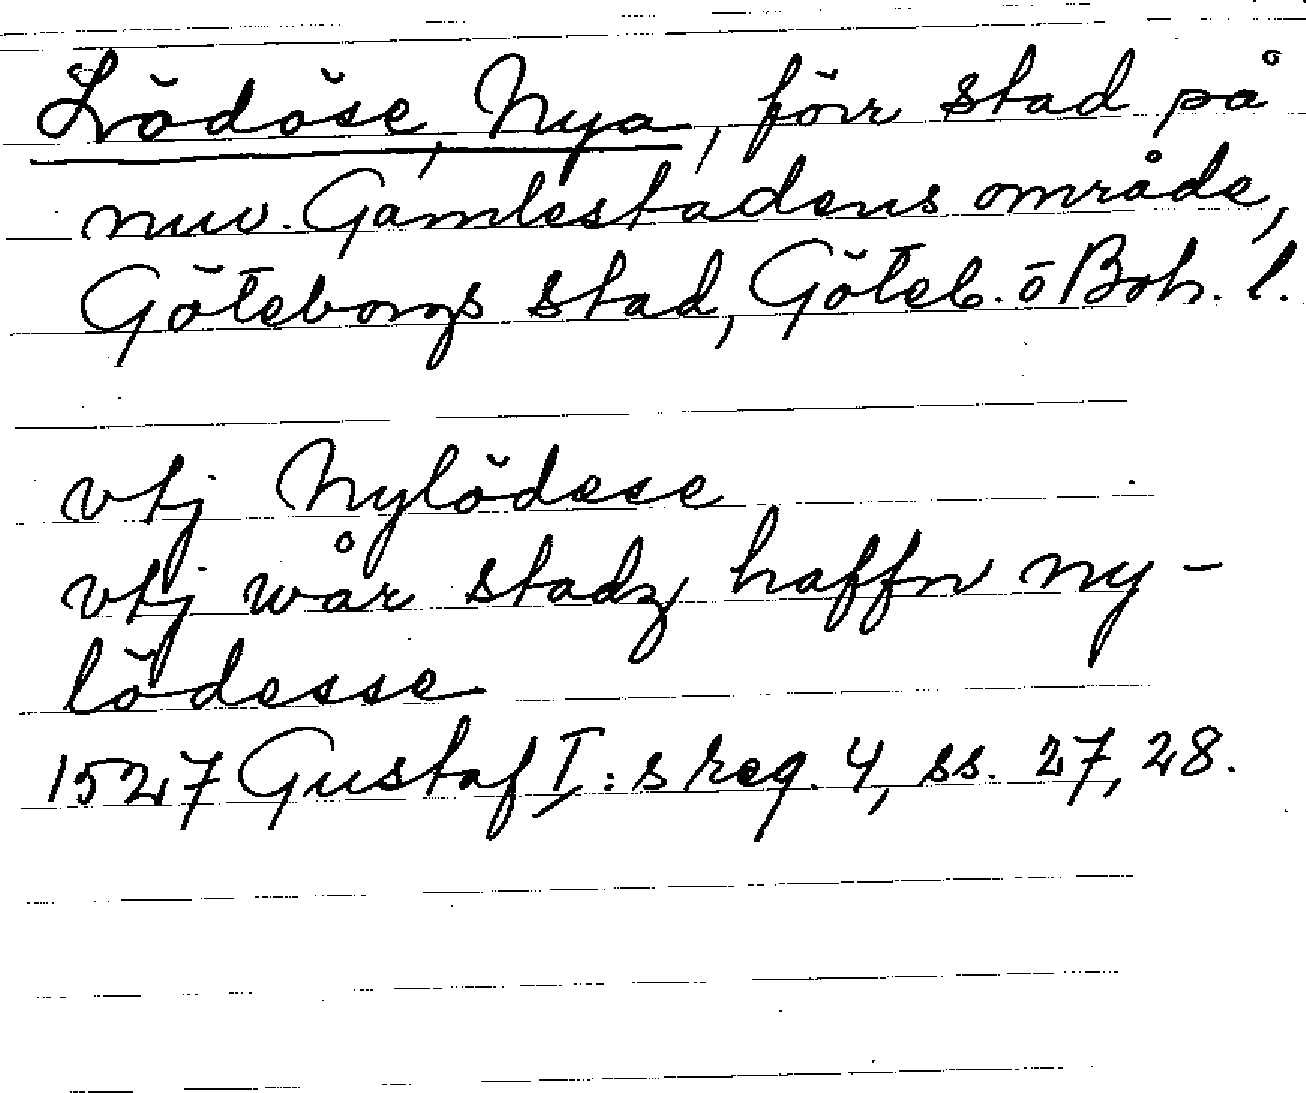 Lödöse, Nya, förr stad på
nuv. Gamlestadens område,
Göteborgs stad, Göteb. o Boh. l.
vtj Nylödese
vtj wår stadz haffn ny-
lödesse
1527 Gustaf I:s reg. 4, ss. 27, 28.